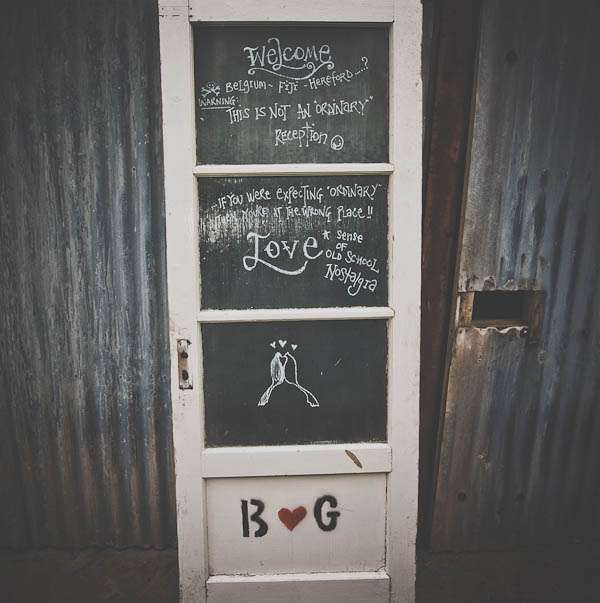 Welcome
BELGIUM ~ FIJI - HEREFORD....?
WARNING
THIS IS NOT AN "ORDINARY"
RECEPTION
...IF YOU WERE EXPECTING "ORDINARY"
THEN YOU'RE AT THE WRONG PLACE!!
Love
* SENSE
OF
OLD SCHOOL
NOSTALGIA
B ♥ G